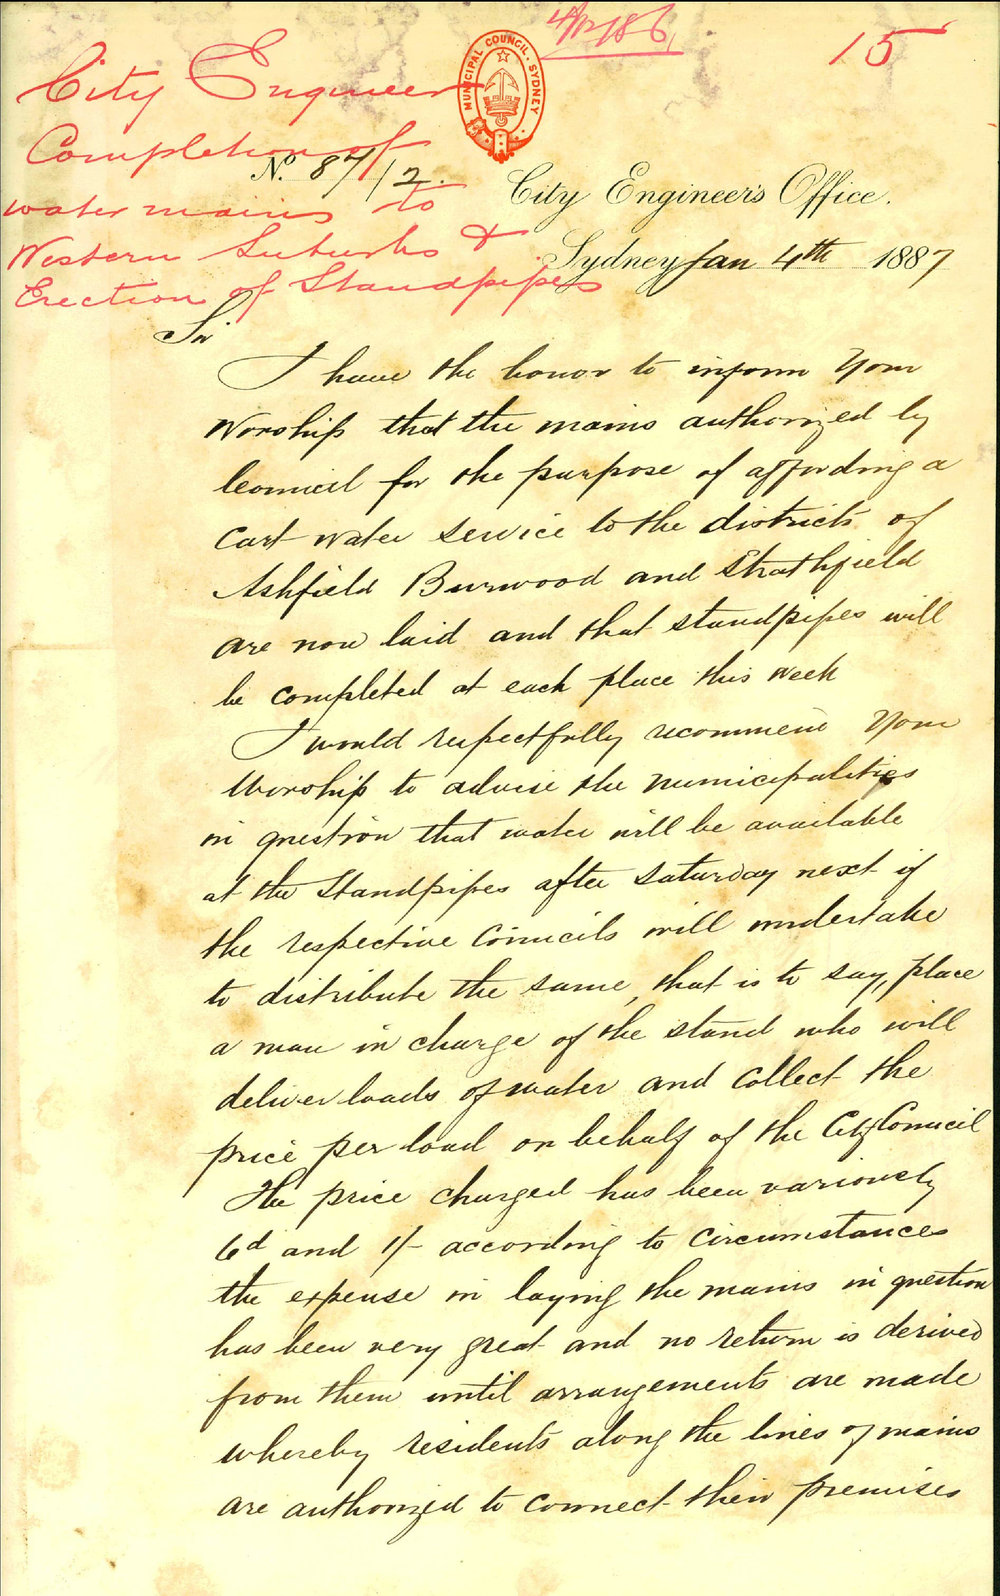 15
MUNICIPAL COUNCIL. SYDNEY
City Engineer
Completion of
No. 87/12.
City Engineer's Office.
water mains to
Western Suburbs &
Sydney Jan 4th 1887
Erection of Standpipes
Sir
I have the honor to inform Your
Worship that the mains authorized by
Council for the purpose of affording a
Cart water service to the districts of
Ashfield Burwood and Strathfield
are now laid and that standpipes will
be completed at each place this week
I would respectfully recommend Your
Worship to advise the Municipalities
in question that water will be available
at the Standpipes after Saturday next if
the respective Councils will undertake
to distribute the same, that is to say, place
a man in charge of the stand who will
deliver loads of water and collect the
price per load on behalf of the City Council
The price charged has been variously
6d and 1/- according to circumstances
the expense in laying the mains in question
has been very great and no return is derived
from them until arrangements are made
whereby residents along the lines of mains
are authorized to connect their premises